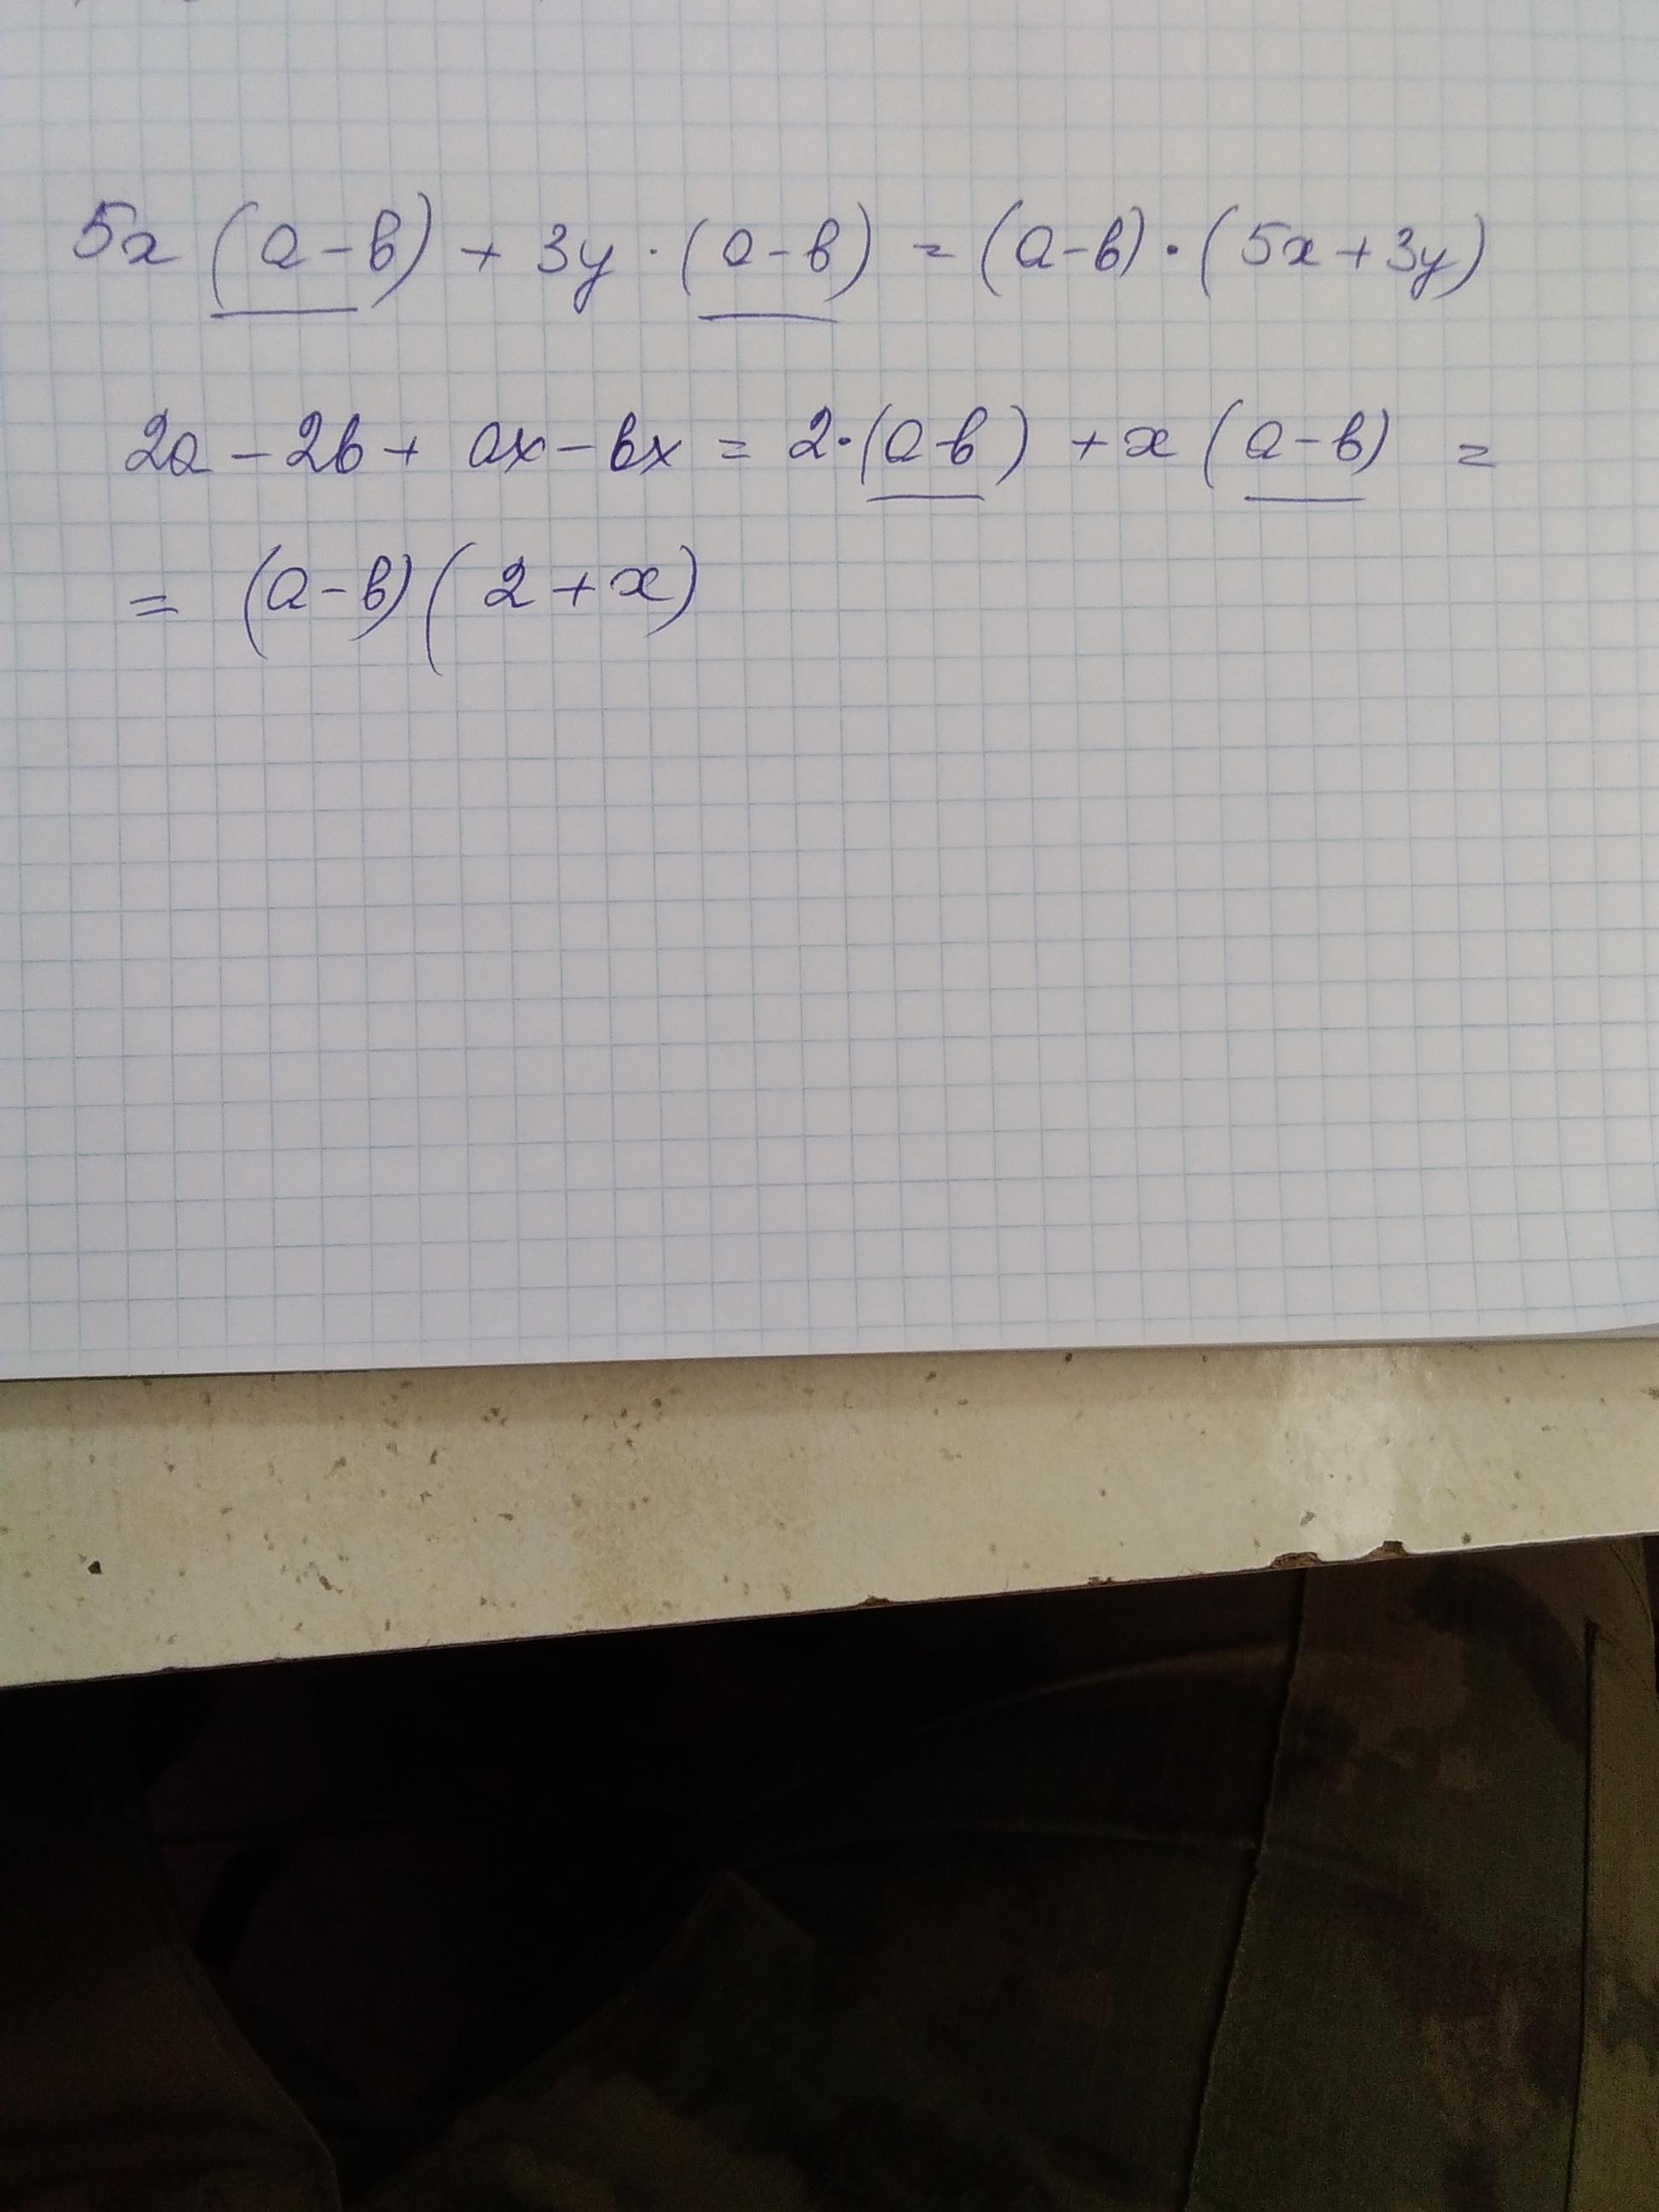 5x (a-b) + 3y · (a-b) = (a-b) · (5x+3y)
2a - 2b + ax - bx = 2·(a-b) + x (a-b) =
= (a-b) (2+x)